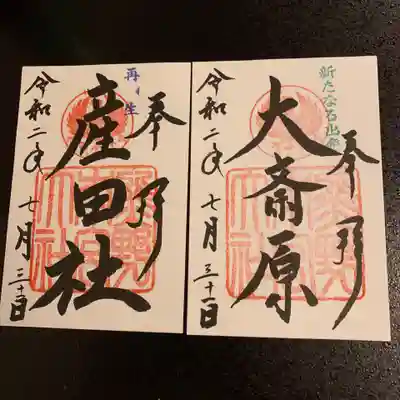 再生
奉拝
産田社
令和二年
七月
三十一日
新たなる出発
奉拝
大斎原
令和二年
七月
三十一日